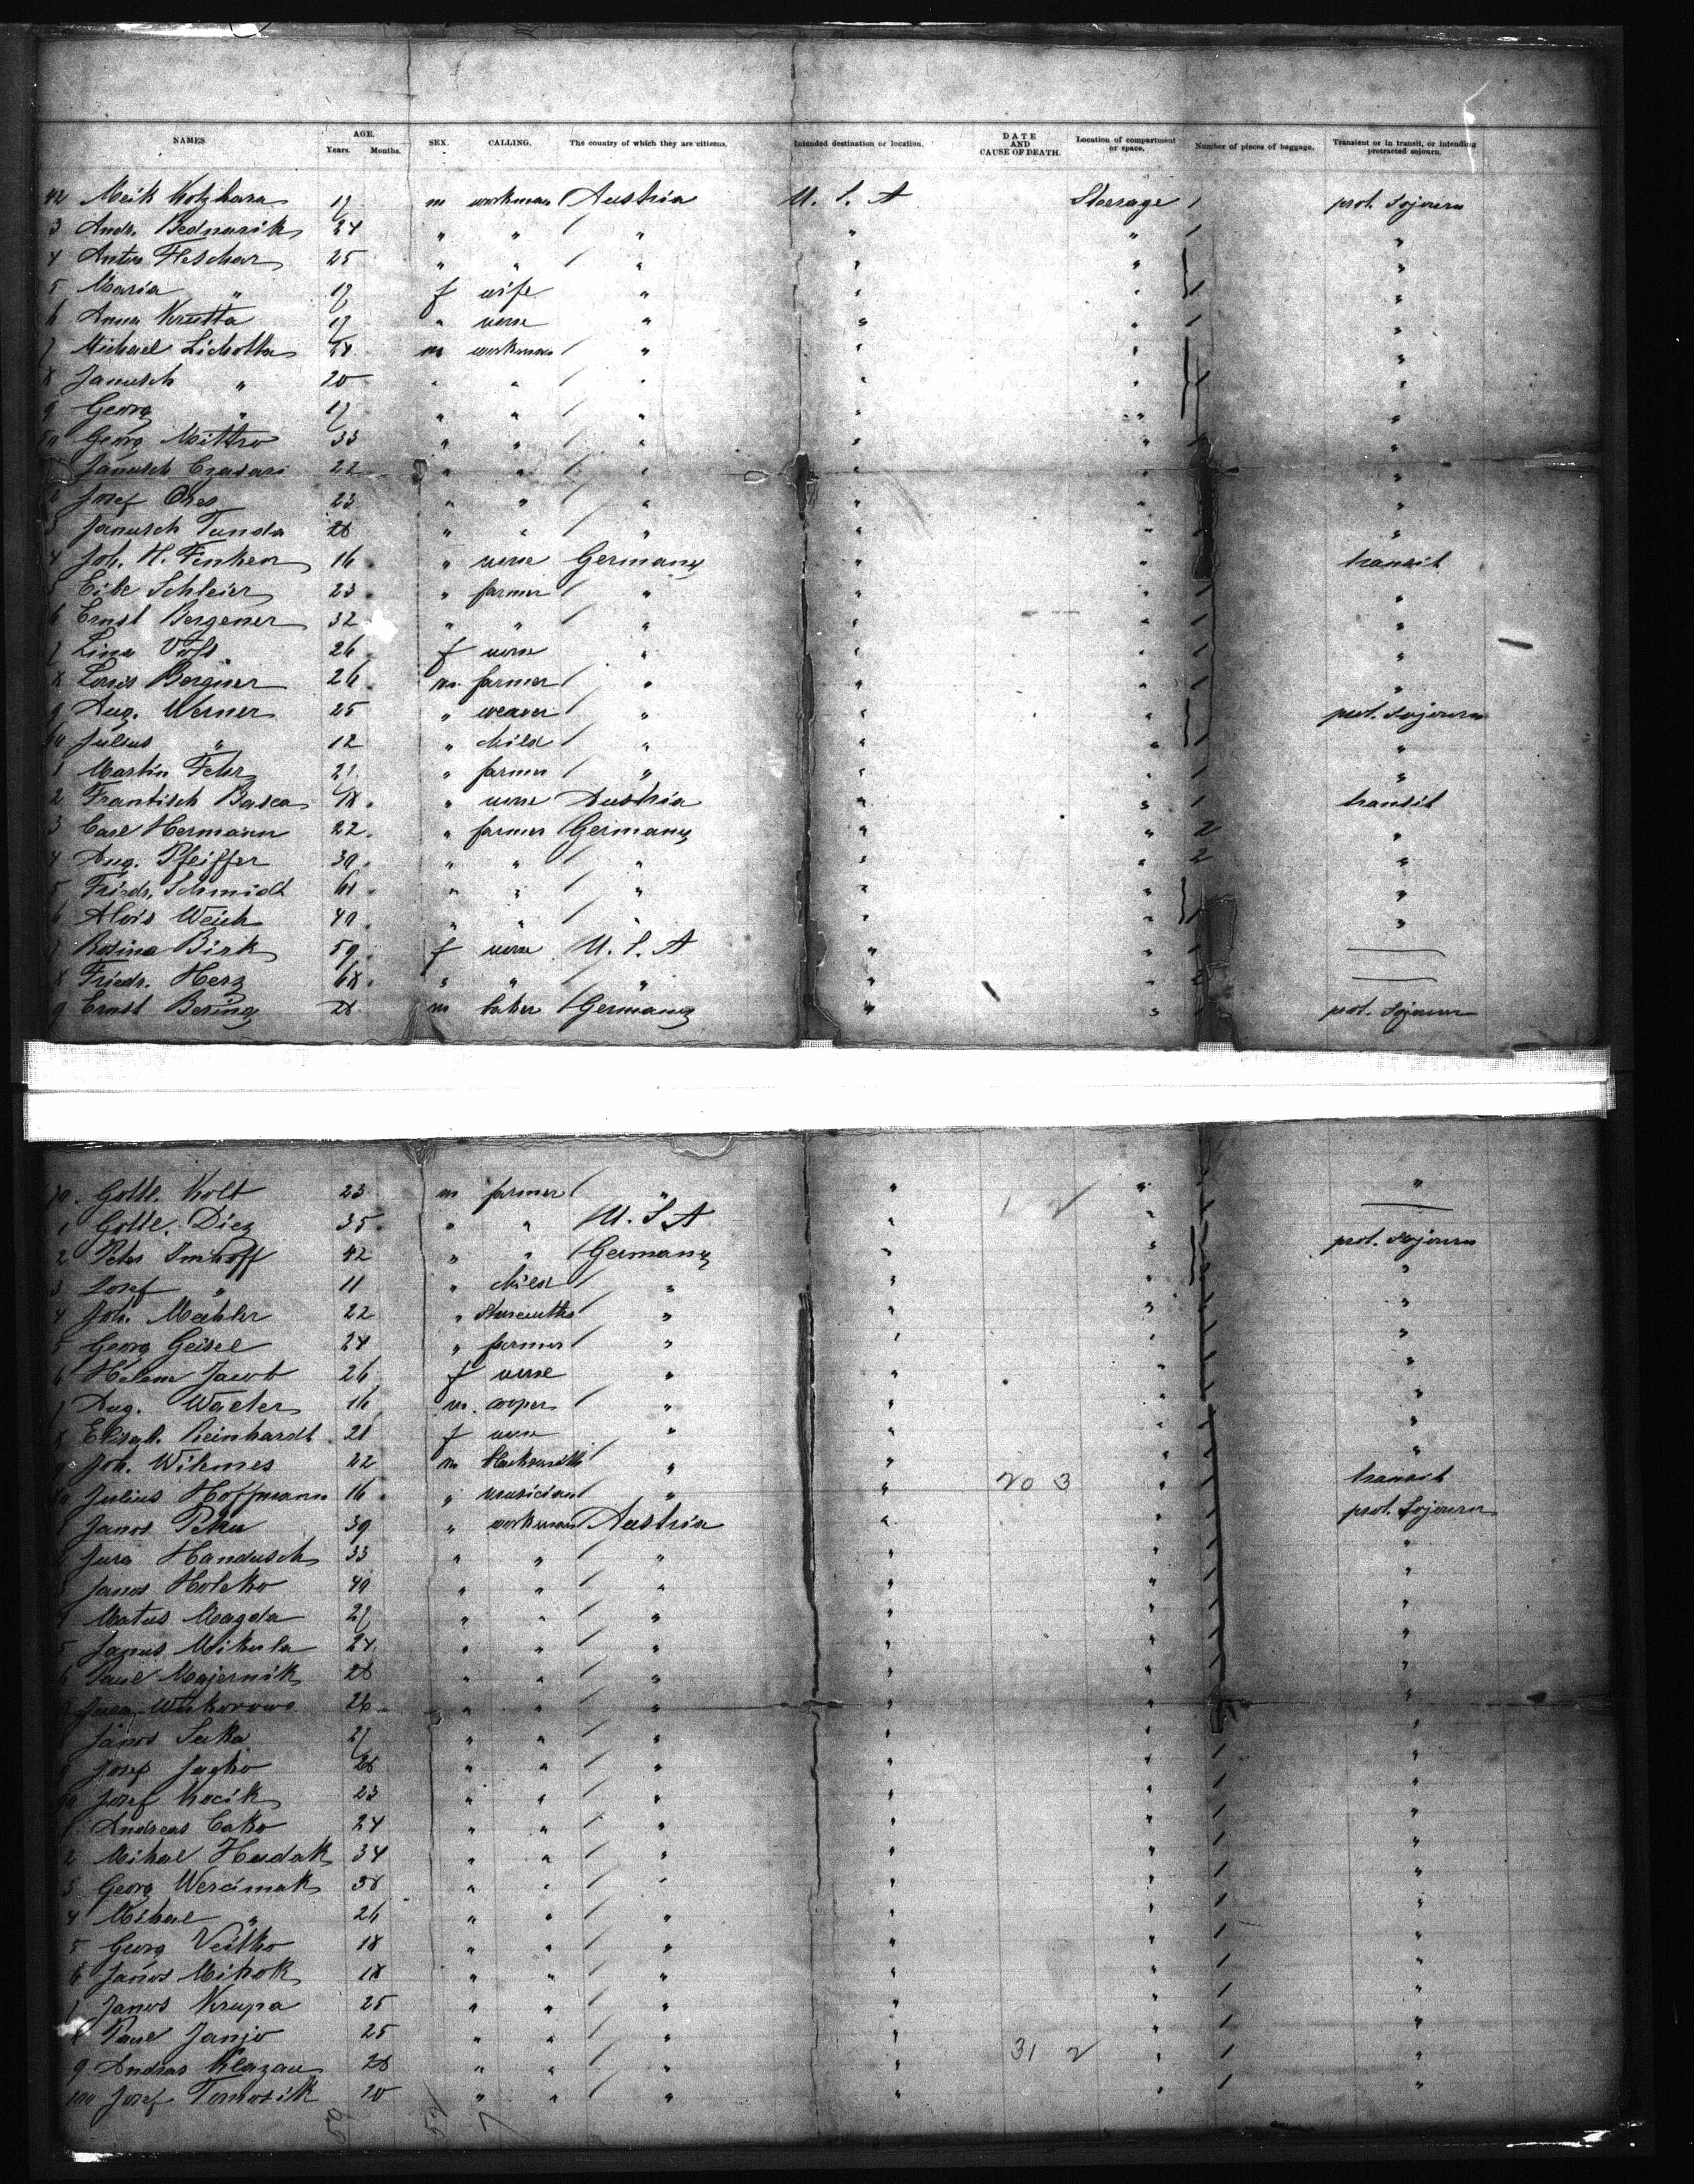 NAMES. AGE. Years. Months. SEX. CALLING. The country of which they are citizens. Intended destination or location. DATE AND CAUSE OF DEATH. Location of compartment or space. Number of pieces of baggage. Transient or in transit, or intending protracted sojourn.
42 Meik Kotzhara 17 m workman Austria U. S. A Steerage 1 prot. Sojourn
3 Andr. Bednarik 34 " " / " " " 1 "
4 Anton Fleschar 25 " " / " " " "
5 Maria " 17 f wife " " " 1 "
6 Anna Krutta 17 " none " " " 1 "
7 Michael Lichotta m workman / " " " "
8 Janusch " 20 " " / " " " "
9 Georg " 17 " " / " " " "
50 Georg Mittro 33 " " / " " " "
1 Janusch Czasari 22 " " / " " " "
2 Josef Ores 23 " " / " " " "
3 Janusch Tanda 28 " " / " " " "
4 Joh. H. Finken 16 " none Germany " " transit
5 Eibe Schleier 23 " farmer / " " " 1 "
6 Ernst Bergener 32 " " / " " " 1 "
7 Lina 26 f none " " " 1 "
8 Louis Bergner 26 m farmer / " " " 1 "
9 Aug. Werner 25 " weaver / " " " prot. Sojourn
60 Julius " 12 " child / " " " 1 "
1 Martin Fehr 21 " farmer / " " " 1 "
2 Frantisch Basca 18 " none Austria " " 1 transit
3 Carl Hermann 22 " farmer Germany " " 2 "
4 Aug. Pfeiffer 30 " " / " " " 2 "
5 Friedr. Schmidt 64 " " / " " " "
6 Alois Weich 40 " " / " " " 1 "
7 Rosina Birk 59 f none U. S. A " " 1 —
8 Friedr. Herz 68 " " / " " " 2 —
9 Ernst Bering 28 m baker / Germany " " 1 prot. Sojourn
70 Gottl. Kolb 23 m farmer / " " " 1 "
1 Gottl. Diez 35 " " / U. S. A " " 1 —
2 Peter Imhoff 42 " " / Germany " " prot. Sojourn
3 Josef " 11 " child / " " " "
4 Joh. Mechler 22 " / " " " 1 "
5 Georg Geisel 24 " farmer / " " " 1 "
6 Helene Jacob 26 f none " " " 1 "
7 Aug. Walter 16 m cooper / " " " 1 "
8 Elisab. Reinhardt 21 f none " " " 1 "
9 Joh. Wilmes 22 m blacksmith / " " " 1 "
80 Julius Hoffmann 16 " musician / " " 20 3 " 1 transit
1 Janos Peku 39 " workman / Austria " " 1 prot. Sojourn
2 Jura Handusch 33 " " / " " " 1 "
3 Janos Holeko 40 " " / " " " 1 "
4 Matus Magda 27 " " / " " " 1 "
5 Janus Mikula 24 " " / " " " 1 "
6 Paul Majernik 28 " " / " " " 1 "
7 26 " " / " " " 1 "
8 Janos Suka 27 " " / " " " 1 "
9 Josef Jagko 28 " " / " " " 1 "
90 Josef Kocik 23 " " / " " " 1 "
1 Andreas Cako 24 " " / " " " 1 "
2 Mihal Hudak 34 " " / " " " 1 "
3 Georg Wercimak 38 " " / " " " 1 "
4 Mihal " 26 " " / " " " 1 "
5 Georg Veitko 18 " " / " " " 1 "
6 Janos Mihok 18 " " / " " " 1 "
7 Janos Krupa 25 " " / " " " 1 "
8 Paul Janjo 25 " " / " " " 1 "
9 Andras Klazau 28 " " / " " 31 2 " 1 "
100 Josef Tomosik 20 " " / " " " 1 "